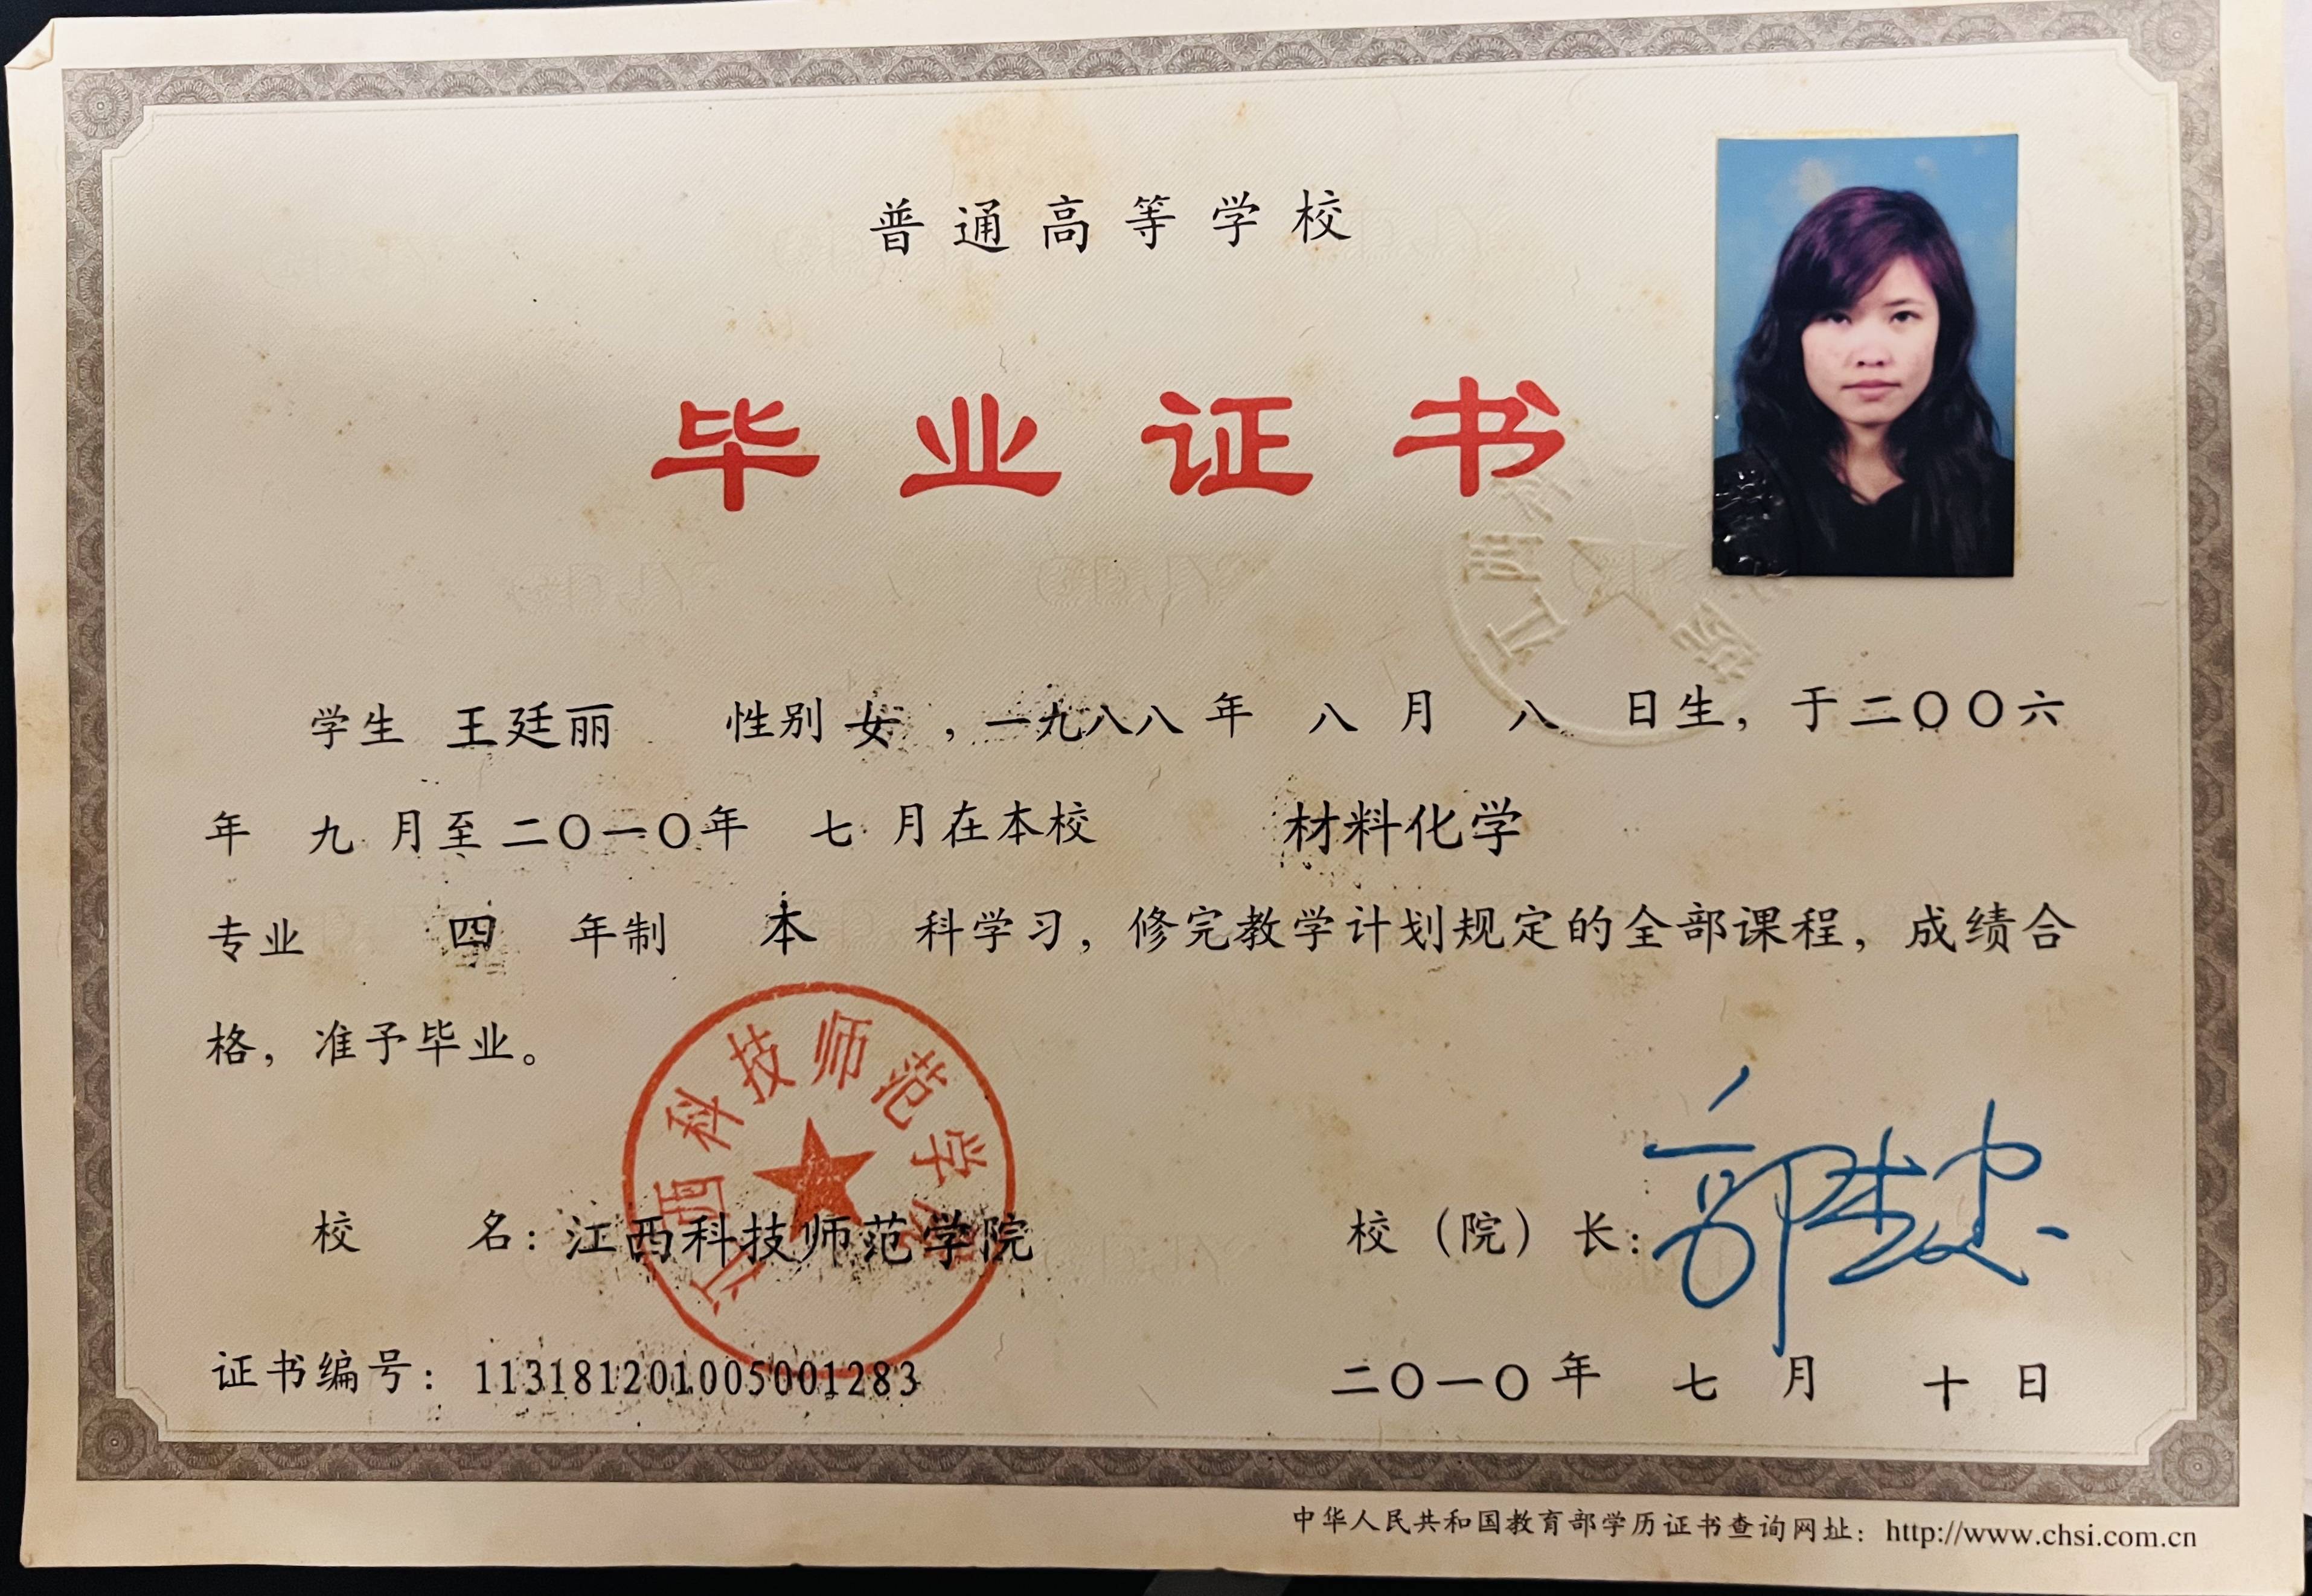 普通高等学校
毕业证书
学生 王廷丽 性别 女 ，一九八八 年 八 月 八 日生，于二〇〇六
年 九 月至二〇一〇年 七 月在本校 材料化学
专业 四 年制 本 科学习，修完教学计划规定的全部课程，成绩合
格，准予毕业。
江西科技师范学院
校 名：江西科技师范学院
校（院）长：
证书编号：113181201005001283
二〇一〇年 七 月 十 日
中华人民共和国教育部学历证书查询网址：http://www.chsi.com.cn